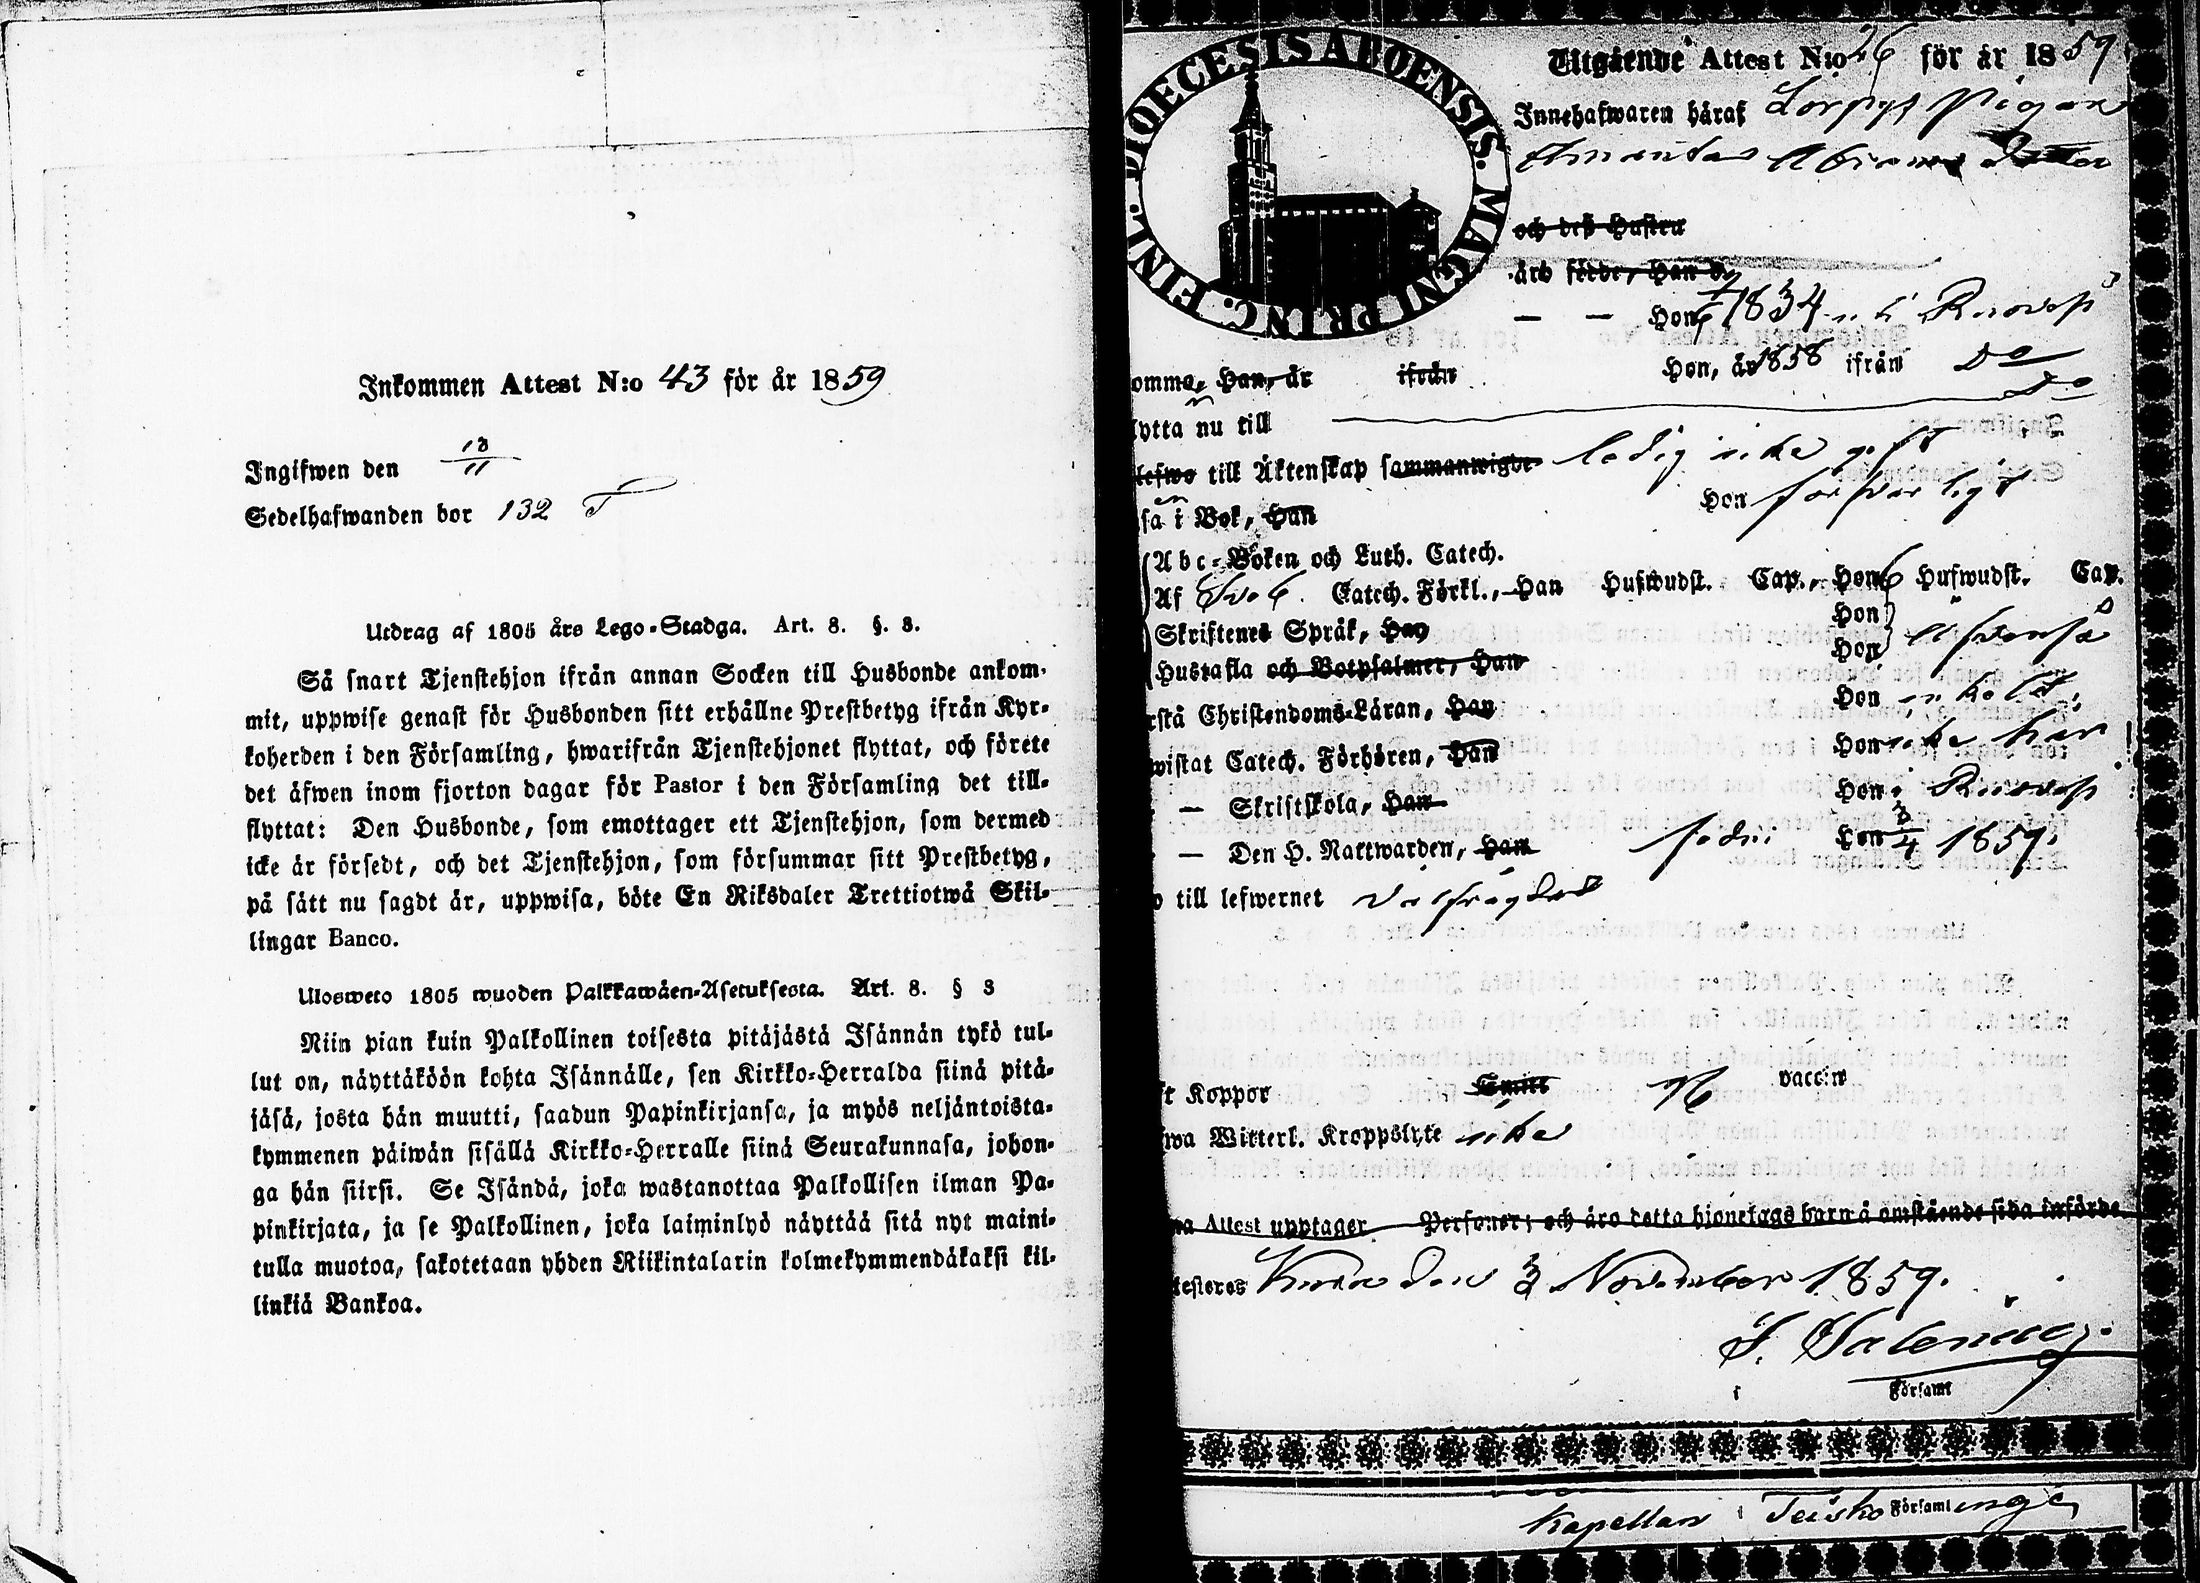 Inkommen Attest N:o 43 för år 1859
Ingifwen den 13/11
Sedelhafwanden bor 132 T
Utdrag af 1805 års Lego-Stadga. Art. 8. §. 3.
Så snart Tjenstehjon ifrån annan Socken till Husbonde ankom-
mit, uppwise genast för Husbonden sitt erhållne Prestbetyg ifrån Kyr-
koherden i den Församling, hwarifrån Tjenstehjonet flyttat, och förete
det äfwen inom fjorton dagar för Pastor i den Församling det till-
flyttat: Den Husbonde, som emottager ett Tjenstehjon, som dermed
icke är försedt, och det Tjenstehjon, som försummar sitt Prestbetyg,
på sätt nu sagdt är, uppwisa, böte En Riksdaler Trettiotwå Skil-
lingar Banco.
Ulosweto 1805 wuoden Palkkawäen-Asetuksesta. Art. 8. § 3
Niin pian kuin Palkollinen toisesta pitäjästä Isännän tykö tul-
lut on, näyttäköön kohta Isännälle, sen Kirkko-Herralda siinä pitä-
jäsä, josta hän muutti, saadun Papinkirjansa, ja myös neljäntoista-
kymmenen päiwän sisällä Kirkko-Herralle siinä Seurakunnasa, johon-
ga hän siirsi. Se Isändä, joka wastanottaa Palkollisen ilman Pa-
pinkirjata, ja se Palkollinen, joka laiminlyö näyttää sitä nyt maini-
tulla muotoa, sakotetaan yhden Riikintalarin kolmekymmendäkaksi kil-
linkiä Bankoa.
FINL. DIOECESIS ABOENSIS. MAGNI PRINC.
Utgående Attest N:o 26 för år 1859
Innehafwaren häraf Pigan
Amanda Abrams Dotter
och deß Hustru
äro födde, Han d
— — Hon 1834 i Ruovesi
omme, Han, år ifrån Hon, år 1858 ifrån Do
lytta nu till Do
lefwo till Äktenskap sammanwigde ledig icke gift
sa i Bok, Han Hon försvarligt
Abc-Boken och Luth. Catech.
Af Sveb. Catech. Förkl., Han Hufwudst. Cap., Hon 6 Hufwudst. Cap.
Skriftenes Språk, Han Hon
Hustafla och Botpsalmer, Han Hon äfvenså
rstå Christendoms-Läran, Han Hon enkelt,
wistat Catech. Förhören, Han Hon icke här
— Skriftskola, Han Hon i Ruovesi
— Den H. Nattwarden, Han sedn: Hon 3/4 1859.
till lefwernet välfrägdad
ft Koppor Smitt vaccin
wa Witterl. Kroppslyte icke
na Attest upptager Personer; och äro detta hjonelags barn å omstående sida införde
testeras Kuru den 3 November 1859.
Församl
Kapellan i Teisko Församlings